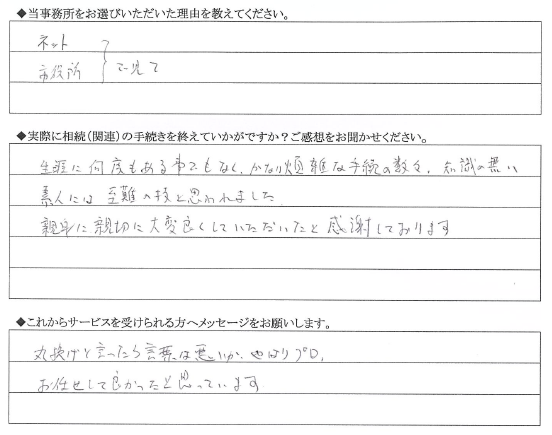 ◆当事務所をお選びいただいた理由を教えてください。
ネット
市役所 で見て
◆実際に相続(関連)の手続きを終えていかがですか?ご感想をお聞かせください。
生涯に何度もある事でもなく、かなり煩雑な手続の数々、知識の無い
素人には至難の技と思われました。
親身に親切に大変良くしていただいたと感謝しております
◆これからサービスを受けられる方へメッセージをお願いします。
丸投げと言ったら言葉は悪いが、やはりプロ、
お任せして良かったと思っています